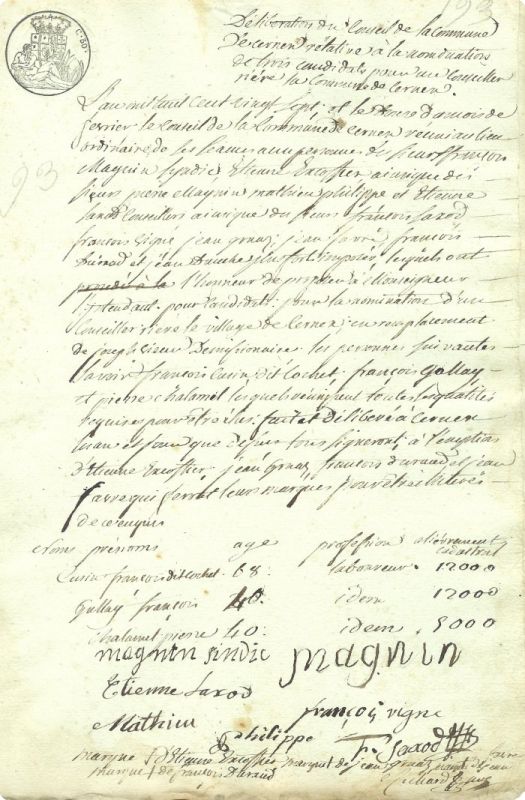 193
C. 50
Deliberation du Conseil de la Commune
de Cernex rélative à la nomination
de trois candidats pour un Conseiller
riére la Commune de Cernex.
L'an mil huit cent vingt sept et le du mois de
fevrier le Conseil de la Commune de Cernex réuni au lieu
ordinaire de ses séances aux personnes de sieurs françois
Magnin syndic, Etienne Excoffier ainsi que des
sieurs pierre Magnin mathieu philippe et Etienne
Saxod Conseillers ainsi que du sieurs françois Saxod
93
françois Vigne jean jean favre françois
Duraud et jean plus forts imposés lesquels ont
procédé à la l'honneur de proposer à Monseigneur
l'jntendant pour Candidats pour la nomination d'un
Conseiller riere le village de Cernex, en remplacement
de joseph Demissionaire les personnes suivantes
savoir françois Cusin dit Cochet, françois Gallay
et pierre Chalamel lesquels réunissent toutes les qualités
requises pour être élus. fait et déliberé à Cernex
l'an et jour que dessus tous signeront à l'éxception
d'Etienne Excoffier, jean françois duraud et jean
favre qui feront leurs marques pour être
de ce enquis
Noms prénoms age profession allivrement cadastral
Cusin françois dit Cochet 68. laboureur. 12000
Gallay françois 40. idem 12000
Chalamel pierre 40. idem 8000
magnin sindic magnin
Etienne Saxod
Mathieu françois vigne
philippe F. Saxod
marque d'Etienne Excoffier marque de jean
marque de françois Duraud